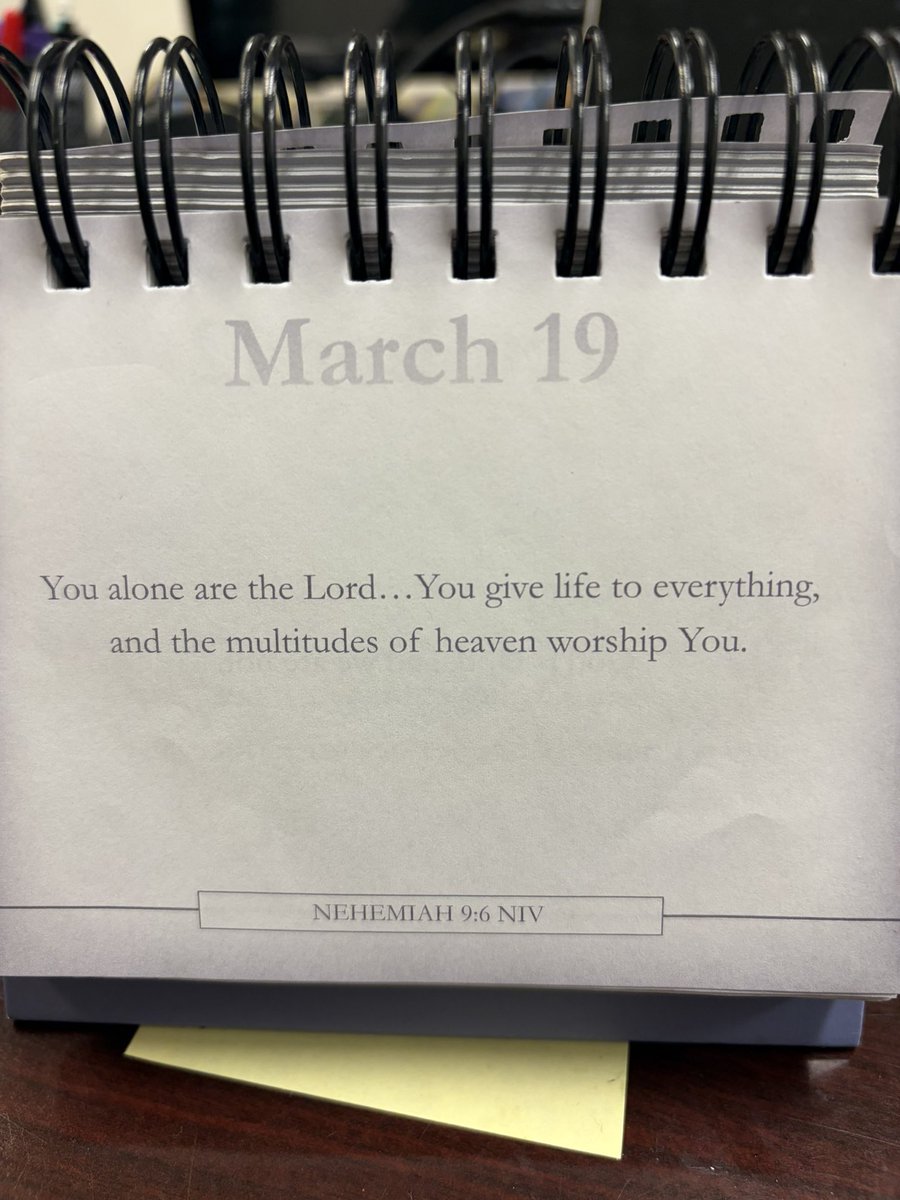 March 19
You alone are the Lord…You give life to everything,
and the multitudes of heaven worship You.
NEHEMIAH 9:6 NIV